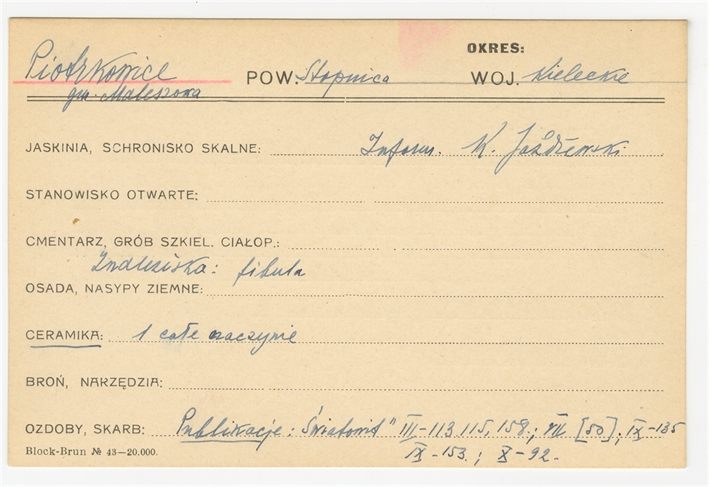 OKRES:
Piotrkowice POW. Stopnica WOJ. Kieleckie
gm. Maleszowa
JASKINIA, SCHRONISKO SKALNE: Inform. K. Jażdżewski
STANOWISKO OTWARTE:
CMENTARZ, GRÓB SZKIEL. CIAŁOP.:
Znaleziska: fibula
OSADA, NASYPY ZIEMNE:
CERAMIKA: 1 całe naczynie
BROŃ, NARZĘDZIA:
OZDOBY, SKARB: Publikacje: Światowit" III-113 115, 158.; VII [50]; IX-135
IX-153.; X-92.
Block-Brun № 43—20.000.